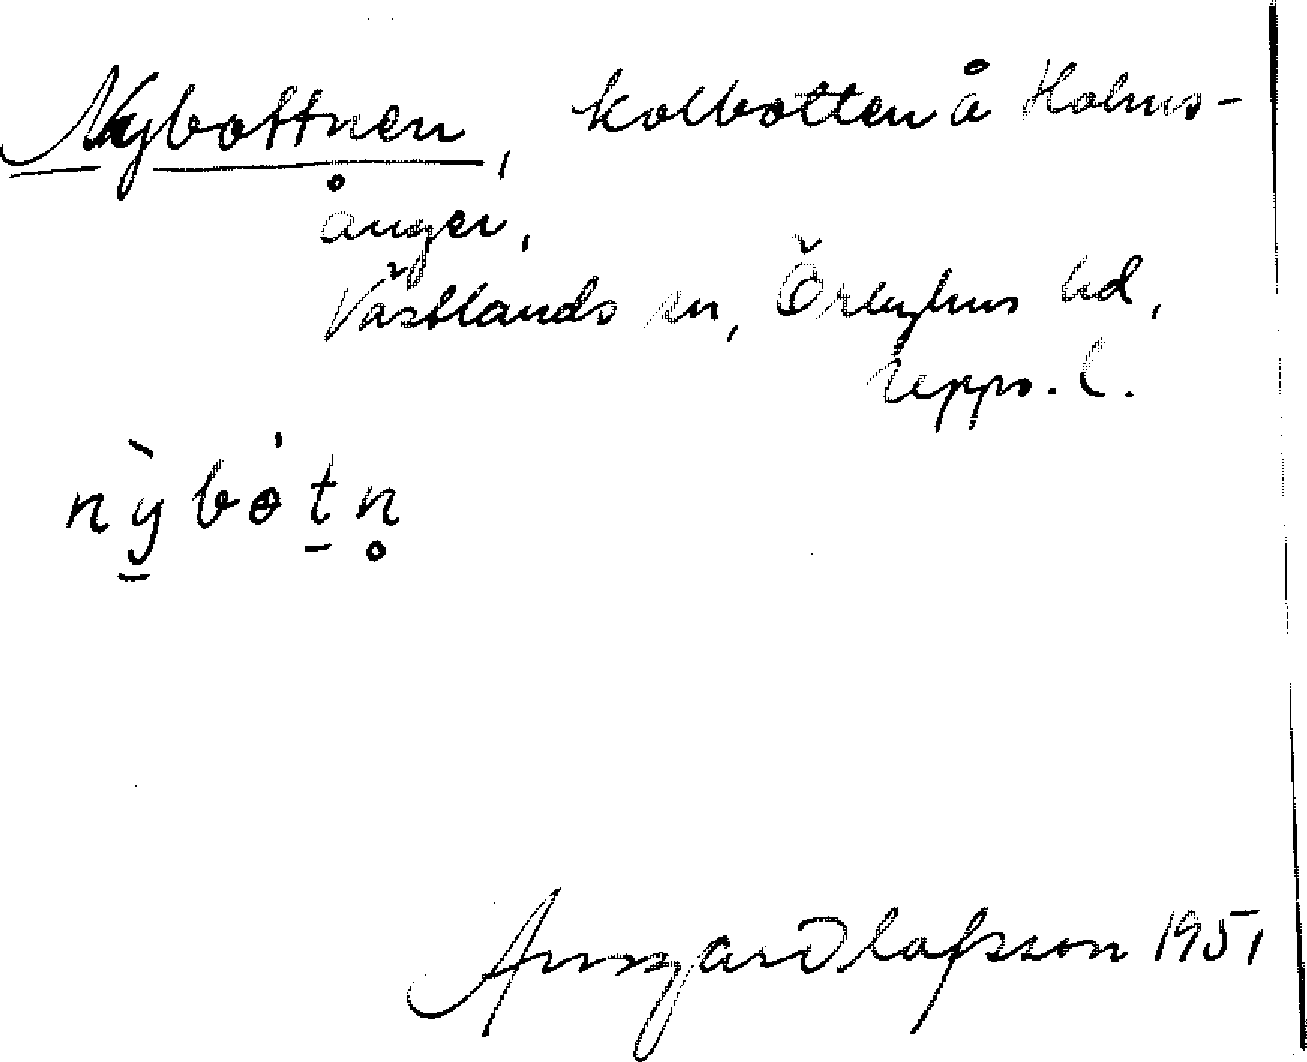 Nybottnen, kolbotten å Holms-
ånger,
Västlands sn, Örbyhus hd,
Upps. l.
nỳ̠bòt̠n̥
Ansgar Olafsson 1951